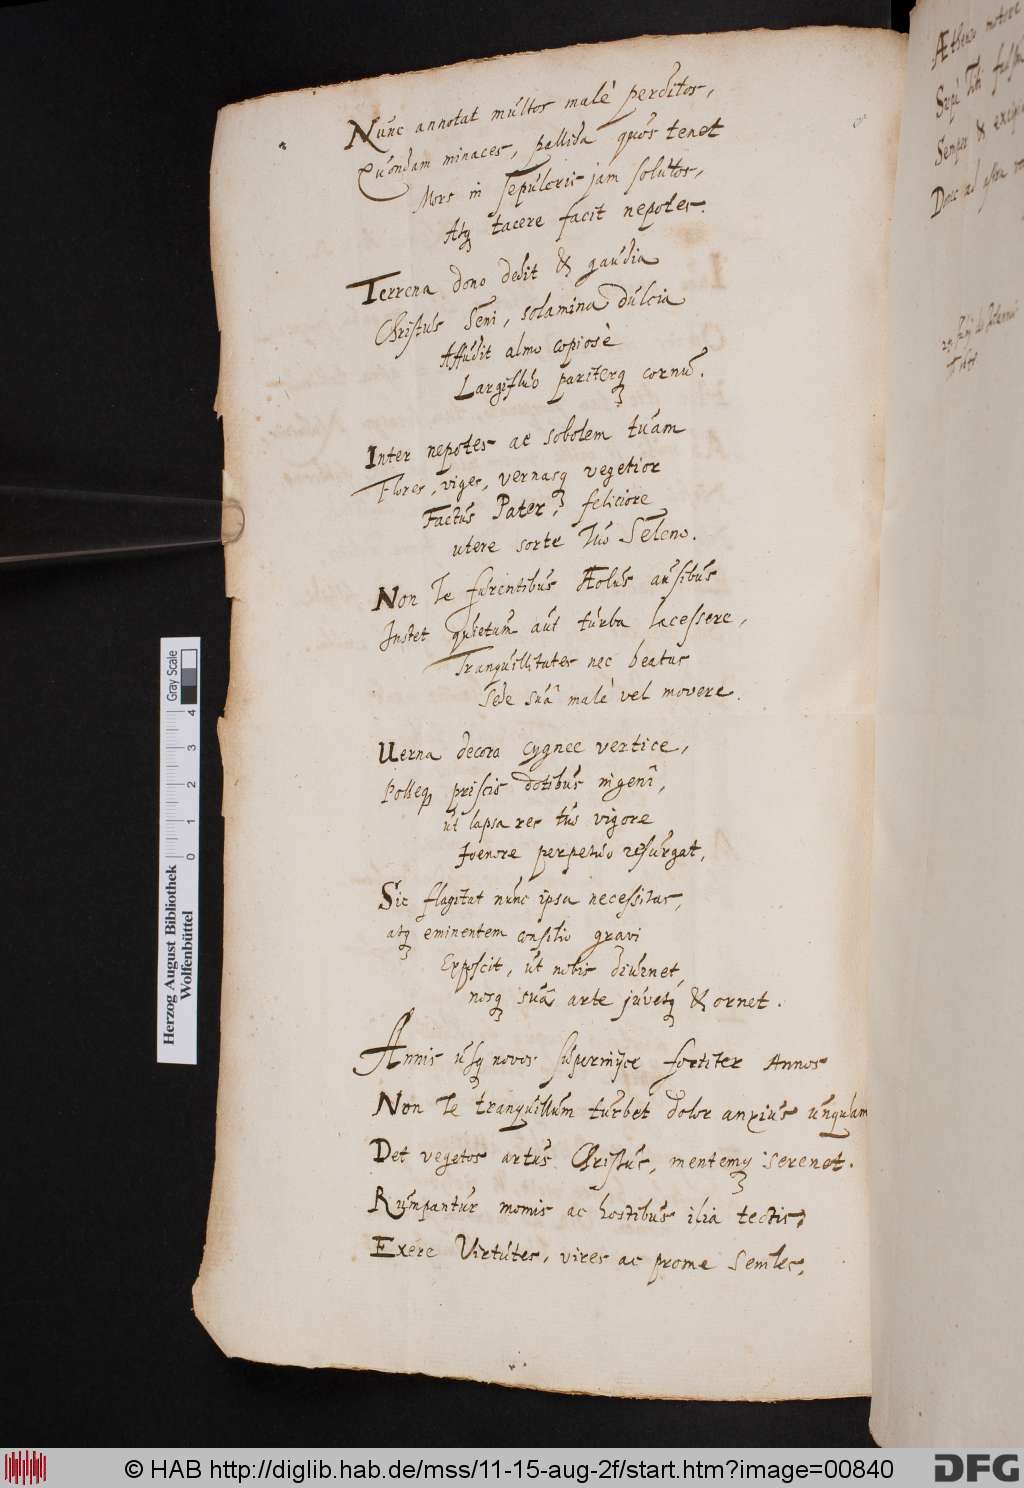 Nunc annotat multos malè perditos,
Quondam minaces, pallida quos tenet
Mors in sepulcris jam solutos,
Atq tacere facit nepotes.
Terrena dono dedit & gaudia
Christus Seni, solamina dulcia
Affudit almo copiosè
Largifluo pariterq cornu.
Inter nepotes ac sobolem tuam
Flores, viges, vernasq vegetior
Factus Pater, feliciore
utere sorte Tuo Seleno.
Non Te furentibus Æolus ausibus
Instet quietum aut turba lacessere,
Tranquillitates nec beatus
Sede suâ malè vel movere.
Uerna decora cygnee vertice,
Polleq priscis dotibus ingenî,
ut lapsa res tuo vigore
Foenore perpetuo resurgat,
Sic flagitat nunc ipsa necessitas,
atq eminentem consilio gravi
Exposcit, ut nobis diurnet,
nosq suâ arte juvetq & ornet.
Annis usq novos superinijce fortiter Annos
Non Te tranquillum turbet dolor anxius unquam
Det vegetos artus Christus, mentemq serenet.
Rumpantur momis ac hostibus ilia tectis,
Exere Virtutes, vires ac prome seniles.
Æthereo
Sæpè Tibi
Semper &
Donec ad astra
Herzog August Bibliothek
Wolfenbüttel
0 1 2 3 4
Gray Scale
© HAB http://diglib.hab.de/mss/11-15-aug-2f/start.htm?image=00840
DFG